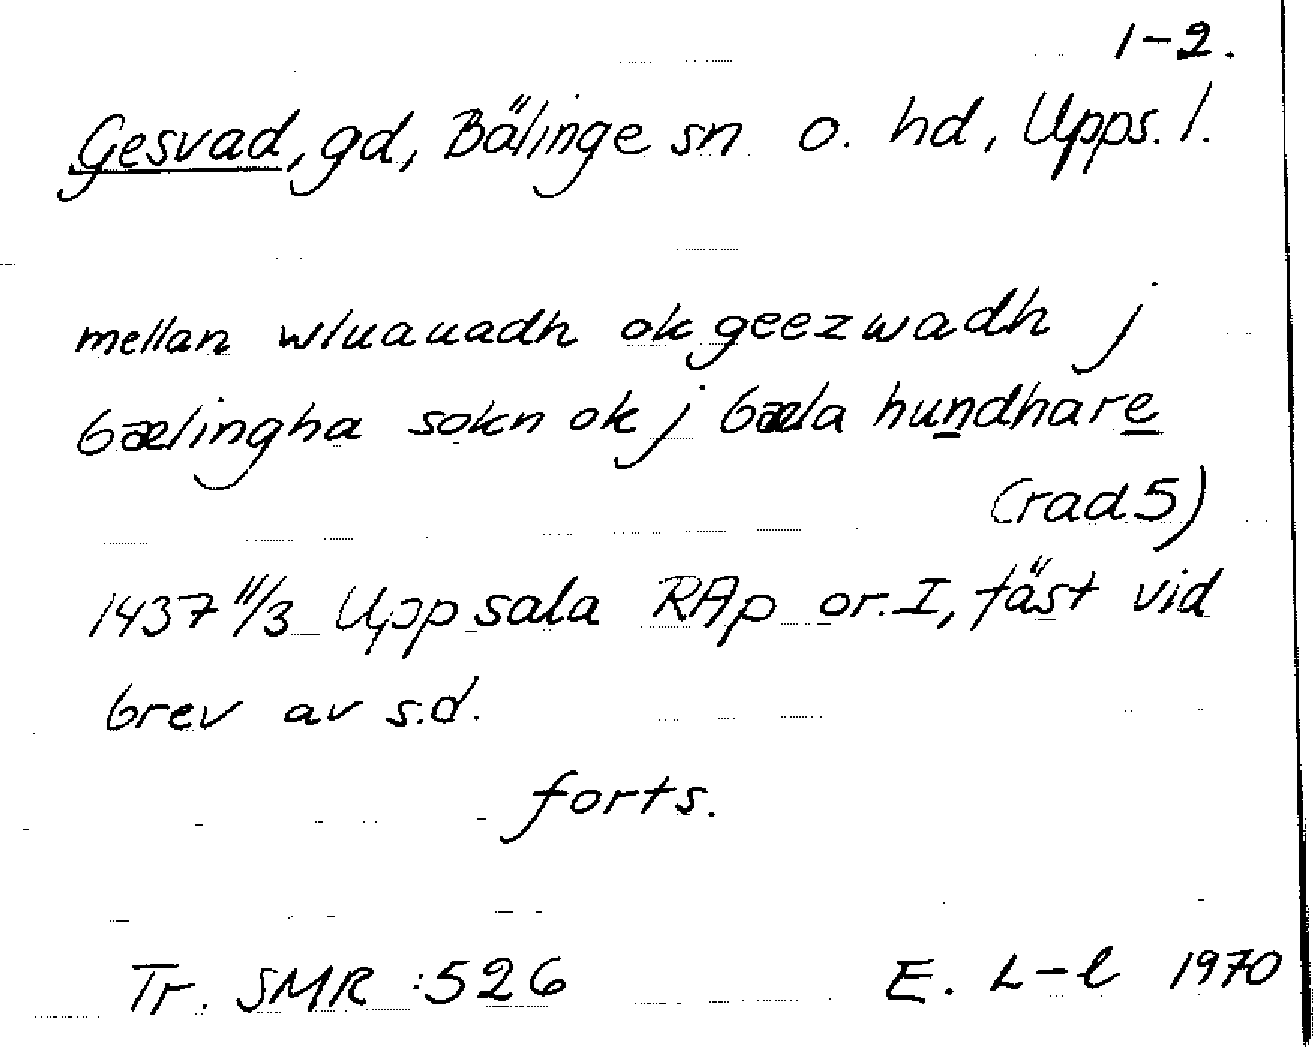 1-2.
Gesvad, gd, Bälinge sn o. hd, Upps. l.
mellan wluauadh ok geezwadh j
bælingha sokn ok j bæla hundhare
(rad 5)
1437 11/3 Uppsala RAp or. I, fäst vid
brev av s.d.
forts.
Tr. SMR :526 E. L-l 1970